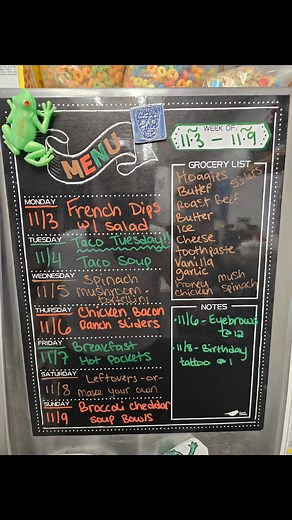 MENU
WEEK OF:
11-3 - 11-9
MONDAY
11/3 French Dips
w/ salad
TUESDAY
11/4 Taco Tuesday!!
Taco Soup
WEDNESDAY
11/5 Spinach
mushroom
tortellini
THURSDAY
11/6 Chicken Bacon
Ranch sliders
FRIDAY
11/7 Breakfast
Hot Pockets
SATURDAY
11/8 Leftovers -or-
make your own
SUNDAY
11/9 Broccoli cheddar
soup Bowls
GROCERY LIST
Hoagies
Butter sliders
Roast Beef
Butter
ice
Cheese
Toothpaste
Vanilla
garlic
honey mush
chicken spinach
NOTES
-11/6 - Eyebrows
@ 12
-11/8 - Birthday
tattoo @ 1